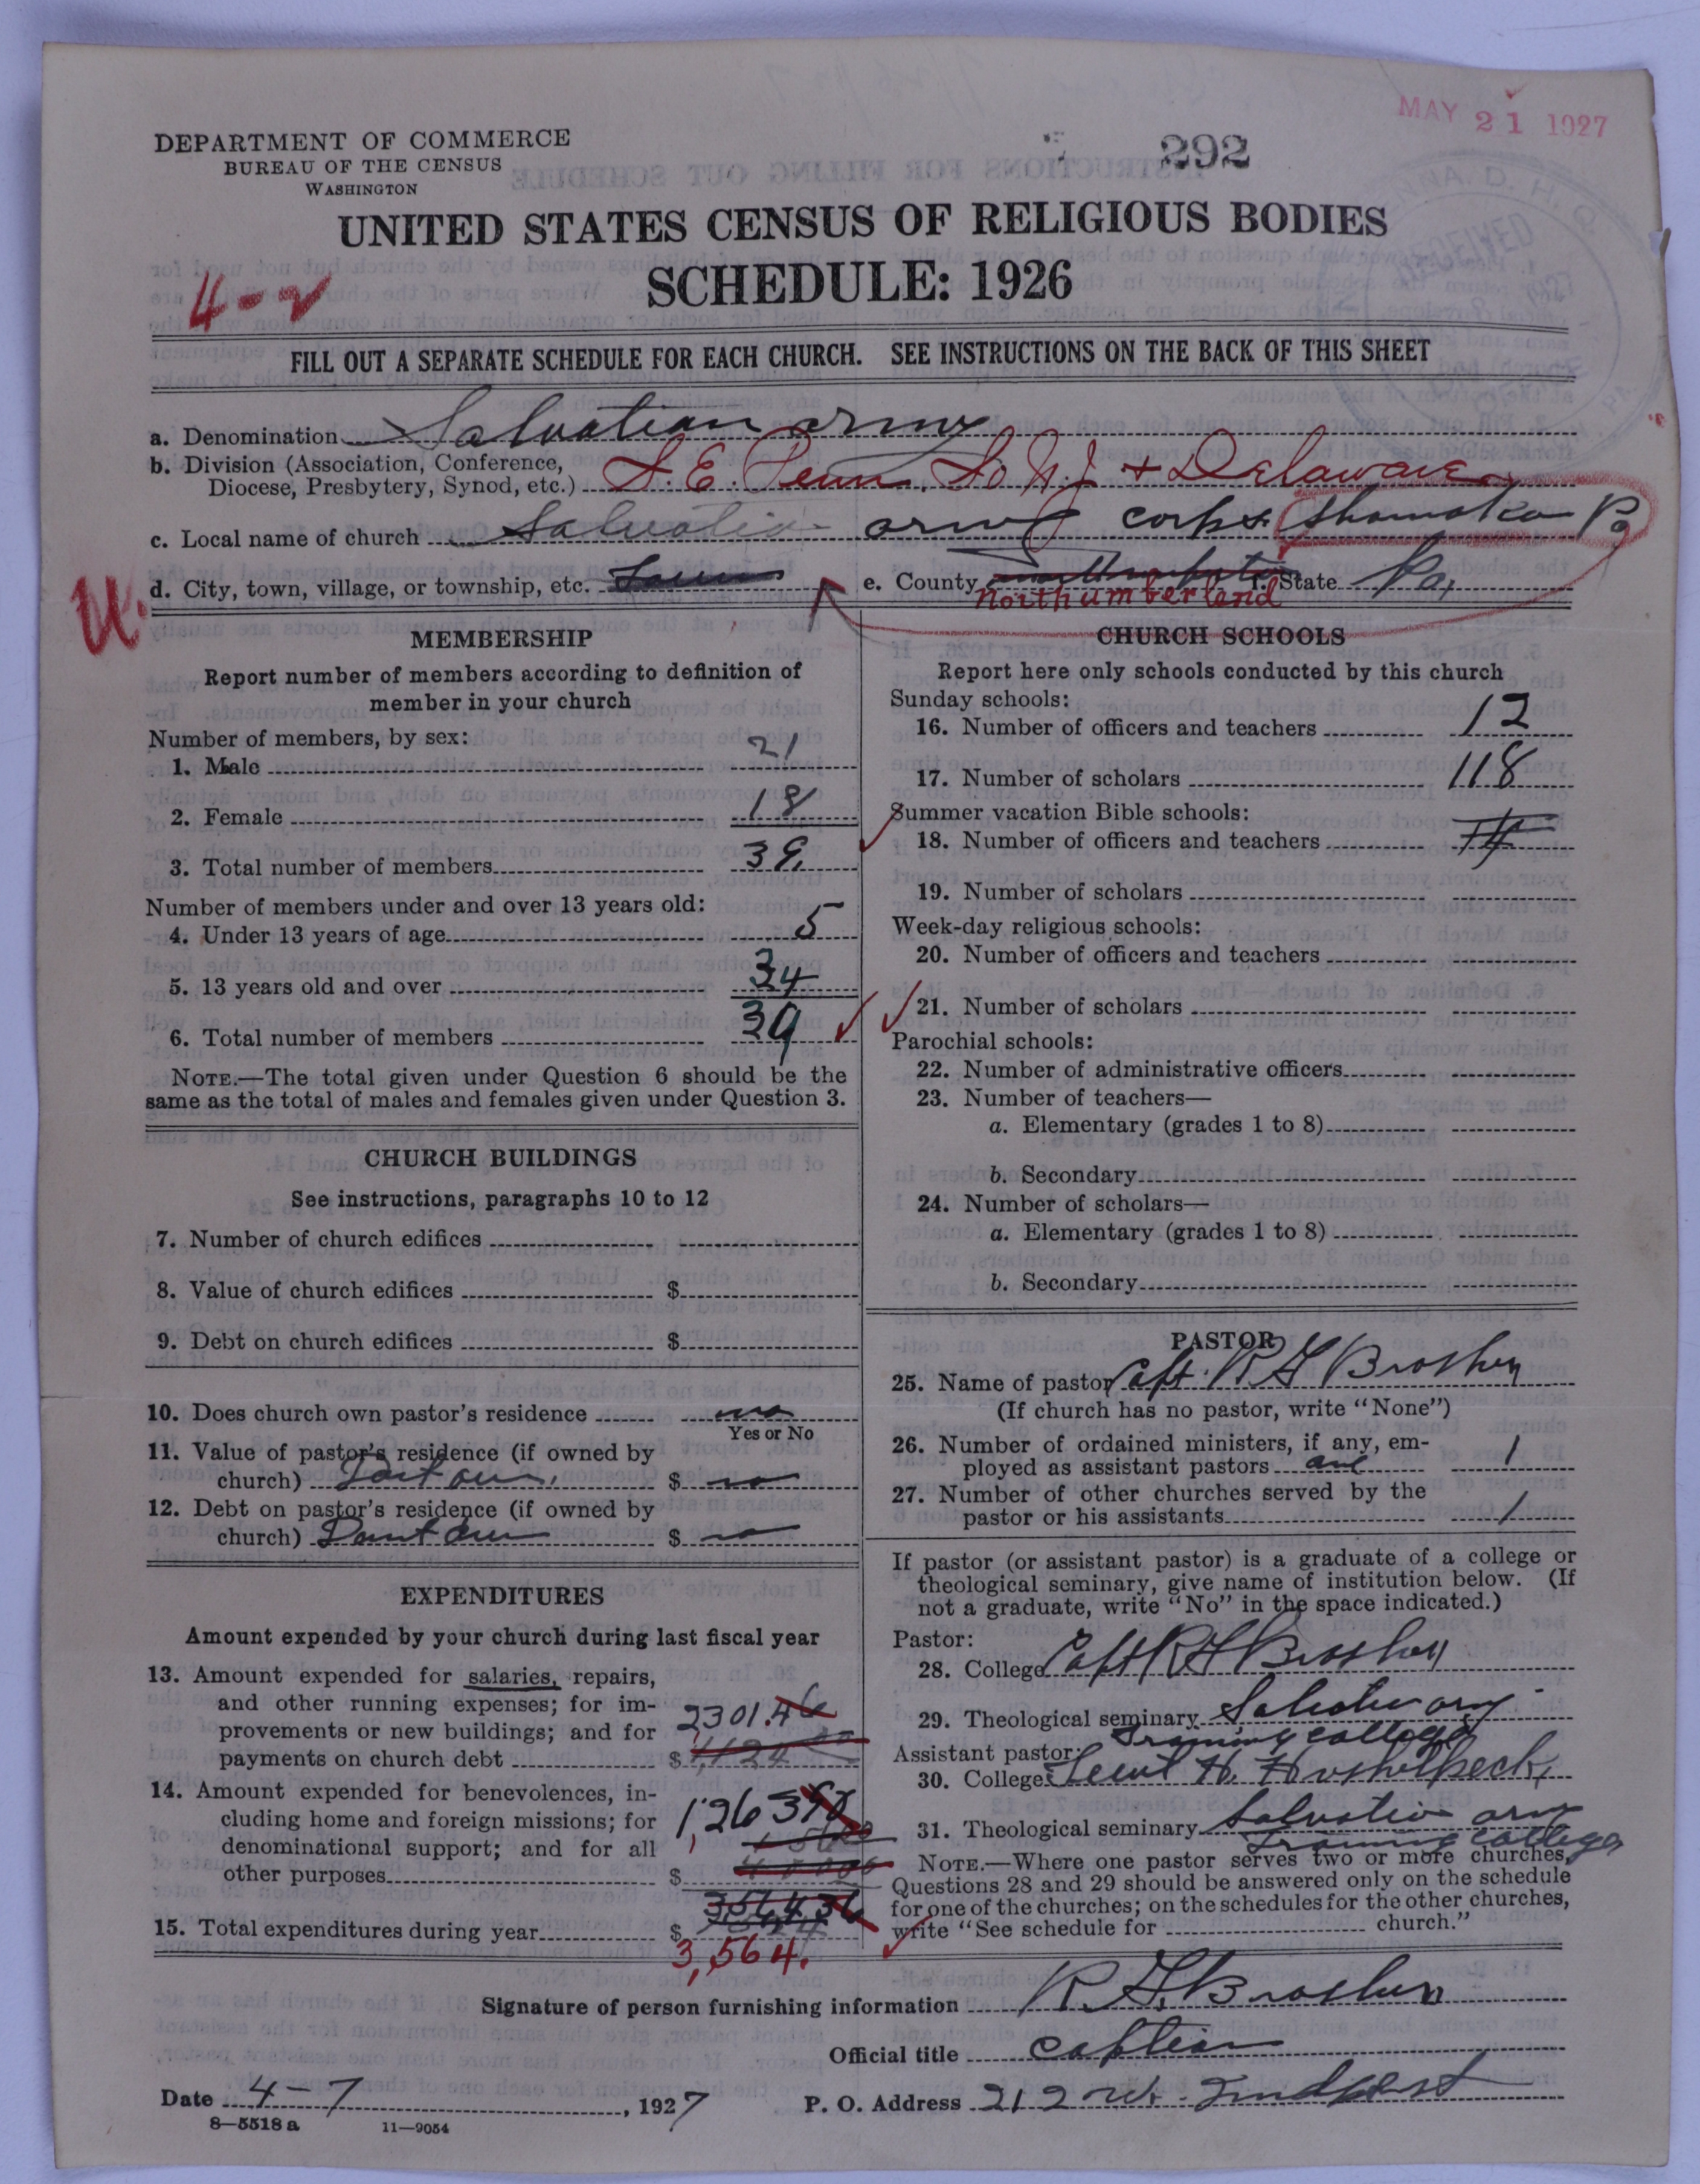 MAY 21 1927
DEPARTMENT OF COMMERCE
BUREAU OF THE CENSUS
WASHINGTON
292
RECEIVED
UNITED STATES CENSUS OF RELIGIOUS BODIES
SCHEDULE: 1926
4-2
FILL OUT A SEPARATE SCHEDULE FOR EACH CHURCH. SEE INSTRUCTIONS ON THE BACK OF THIS SHEET
a. Denomination Salvation army
b. Division (Association, Conference,
Diocese, Presbytery, Synod, etc.) S. E. Penn. So N J + Delaware
c. Local name of church Salvation army corps Shamokin Pa
d. City, town, village, or township, etc. Town e. County Northumberland f. State Pa,
U.
MEMBERSHIP
Report number of members according to definition of
member in your church
Number of members, by sex:
1. Male 21
2. Female 18
3. Total number of members 39
Number of members under and over 13 years old:
4. Under 13 years of age 5
5. 13 years old and over 34
6. Total number of members 39
NOTE.—The total given under Question 6 should be the
same as the total of males and females given under Question 3.
CHURCH BUILDINGS
See instructions, paragraphs 10 to 12
7. Number of church edifices
8. Value of church edifices $
9. Debt on church edifices $
10. Does church own pastor's residence no
Yes or No
11. Value of pastor's residence (if owned by
church) Dont own. $ no
12. Debt on pastor's residence (if owned by
church) Dont own $ no
EXPENDITURES
Amount expended by your church during last fiscal year
13. Amount expended for salaries, repairs,
and other running expenses; for im-
provements or new buildings; and for
payments on church debt $ 2301.46
1124
14. Amount expended for benevolences, in-
cluding home and foreign missions; for
denominational support; and for all
other purposes $ 1,263
15. Total expenditures during year $ 3564
3,564.
CHURCH SCHOOLS
Report here only schools conducted by this church
Sunday schools:
16. Number of officers and teachers 12
17. Number of scholars 118
Summer vacation Bible schools:
18. Number of officers and teachers
19. Number of scholars
Week-day religious schools:
20. Number of officers and teachers
21. Number of scholars
Parochial schools:
22. Number of administrative officers
23. Number of teachers—
a. Elementary (grades 1 to 8)
b. Secondary
24. Number of scholars—
a. Elementary (grades 1 to 8)
b. Secondary
PASTOR
25. Name of pastor Capt. R G Broshey
(If church has no pastor, write "None")
26. Number of ordained ministers, if any, em-
ployed as assistant pastors one 1
27. Number of other churches served by the
pastor or his assistants 1
If pastor (or assistant pastor) is a graduate of a college or
theological seminary, give name of institution below. (If
not a graduate, write "No" in the space indicated.)
Pastor:
28. College Capt R G Broshey
29. Theological seminary Salvation army
Training college
Assistant pastor:
30. College Lieut H.
31. Theological seminary Salvation army
Training college
NOTE.—Where one pastor serves two or more churches,
Questions 28 and 29 should be answered only on the schedule
for one of the churches; on the schedules for the other churches,
write "See schedule for church."
Signature of person furnishing information R. G. Broshey
Official title Captian
Date 4-7, 1927 P. O. Address 212 W.
8-5518 a 11-9054